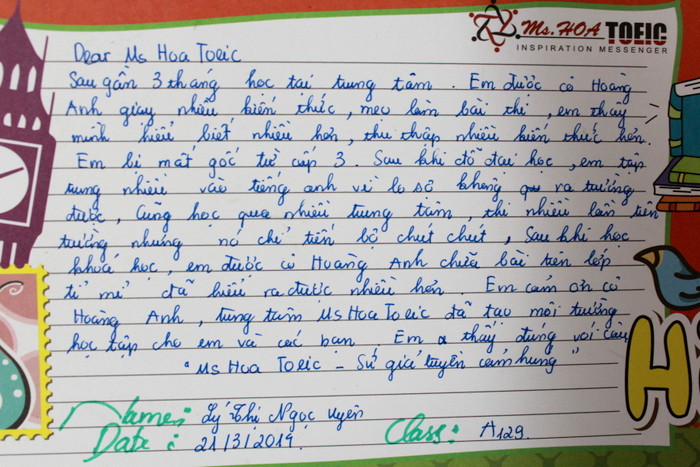 Ms. HOA TOEIC
INSPIRATION MESSENGER
Dear Ms Hoa Toeic
Sau gần 3 tháng học tại trung tâm. Em được cô Hoàng
Anh giảy nhiều kiến thức, mẹo làm bài thi, em thấy
mình hiểu biết nhiều hơn, thu thập nhiều kiến thức hơn.
Em bị mất gốc từ cấp 3. Sau khi đỗ đại học, em tập
trung nhiều vào tiếng anh vì lo sợ không ra trường
được, Cũng học qua nhiều trung tâm, thi nhiều lần trên
trường nhưng nó chỉ tiến bộ chút chút, Sau khi học
khoá học, em được cô Hoàng Anh chữa bài trên lớp
tỉ mỉ đã hiểu ra được nhiều hơn. Em cảm ơn cô
Hoàng Anh, trung tâm Ms Hoa Toeic đã tạo môi trường
học tập cho em và các bạn. Em thấy đúng với câu
"Ms Hoa Toeic - Sứ giả truyền cảm hứng"
Name: Lý Thị Ngọc Uyên
Date: 21/3/2019. Class: A129.
H